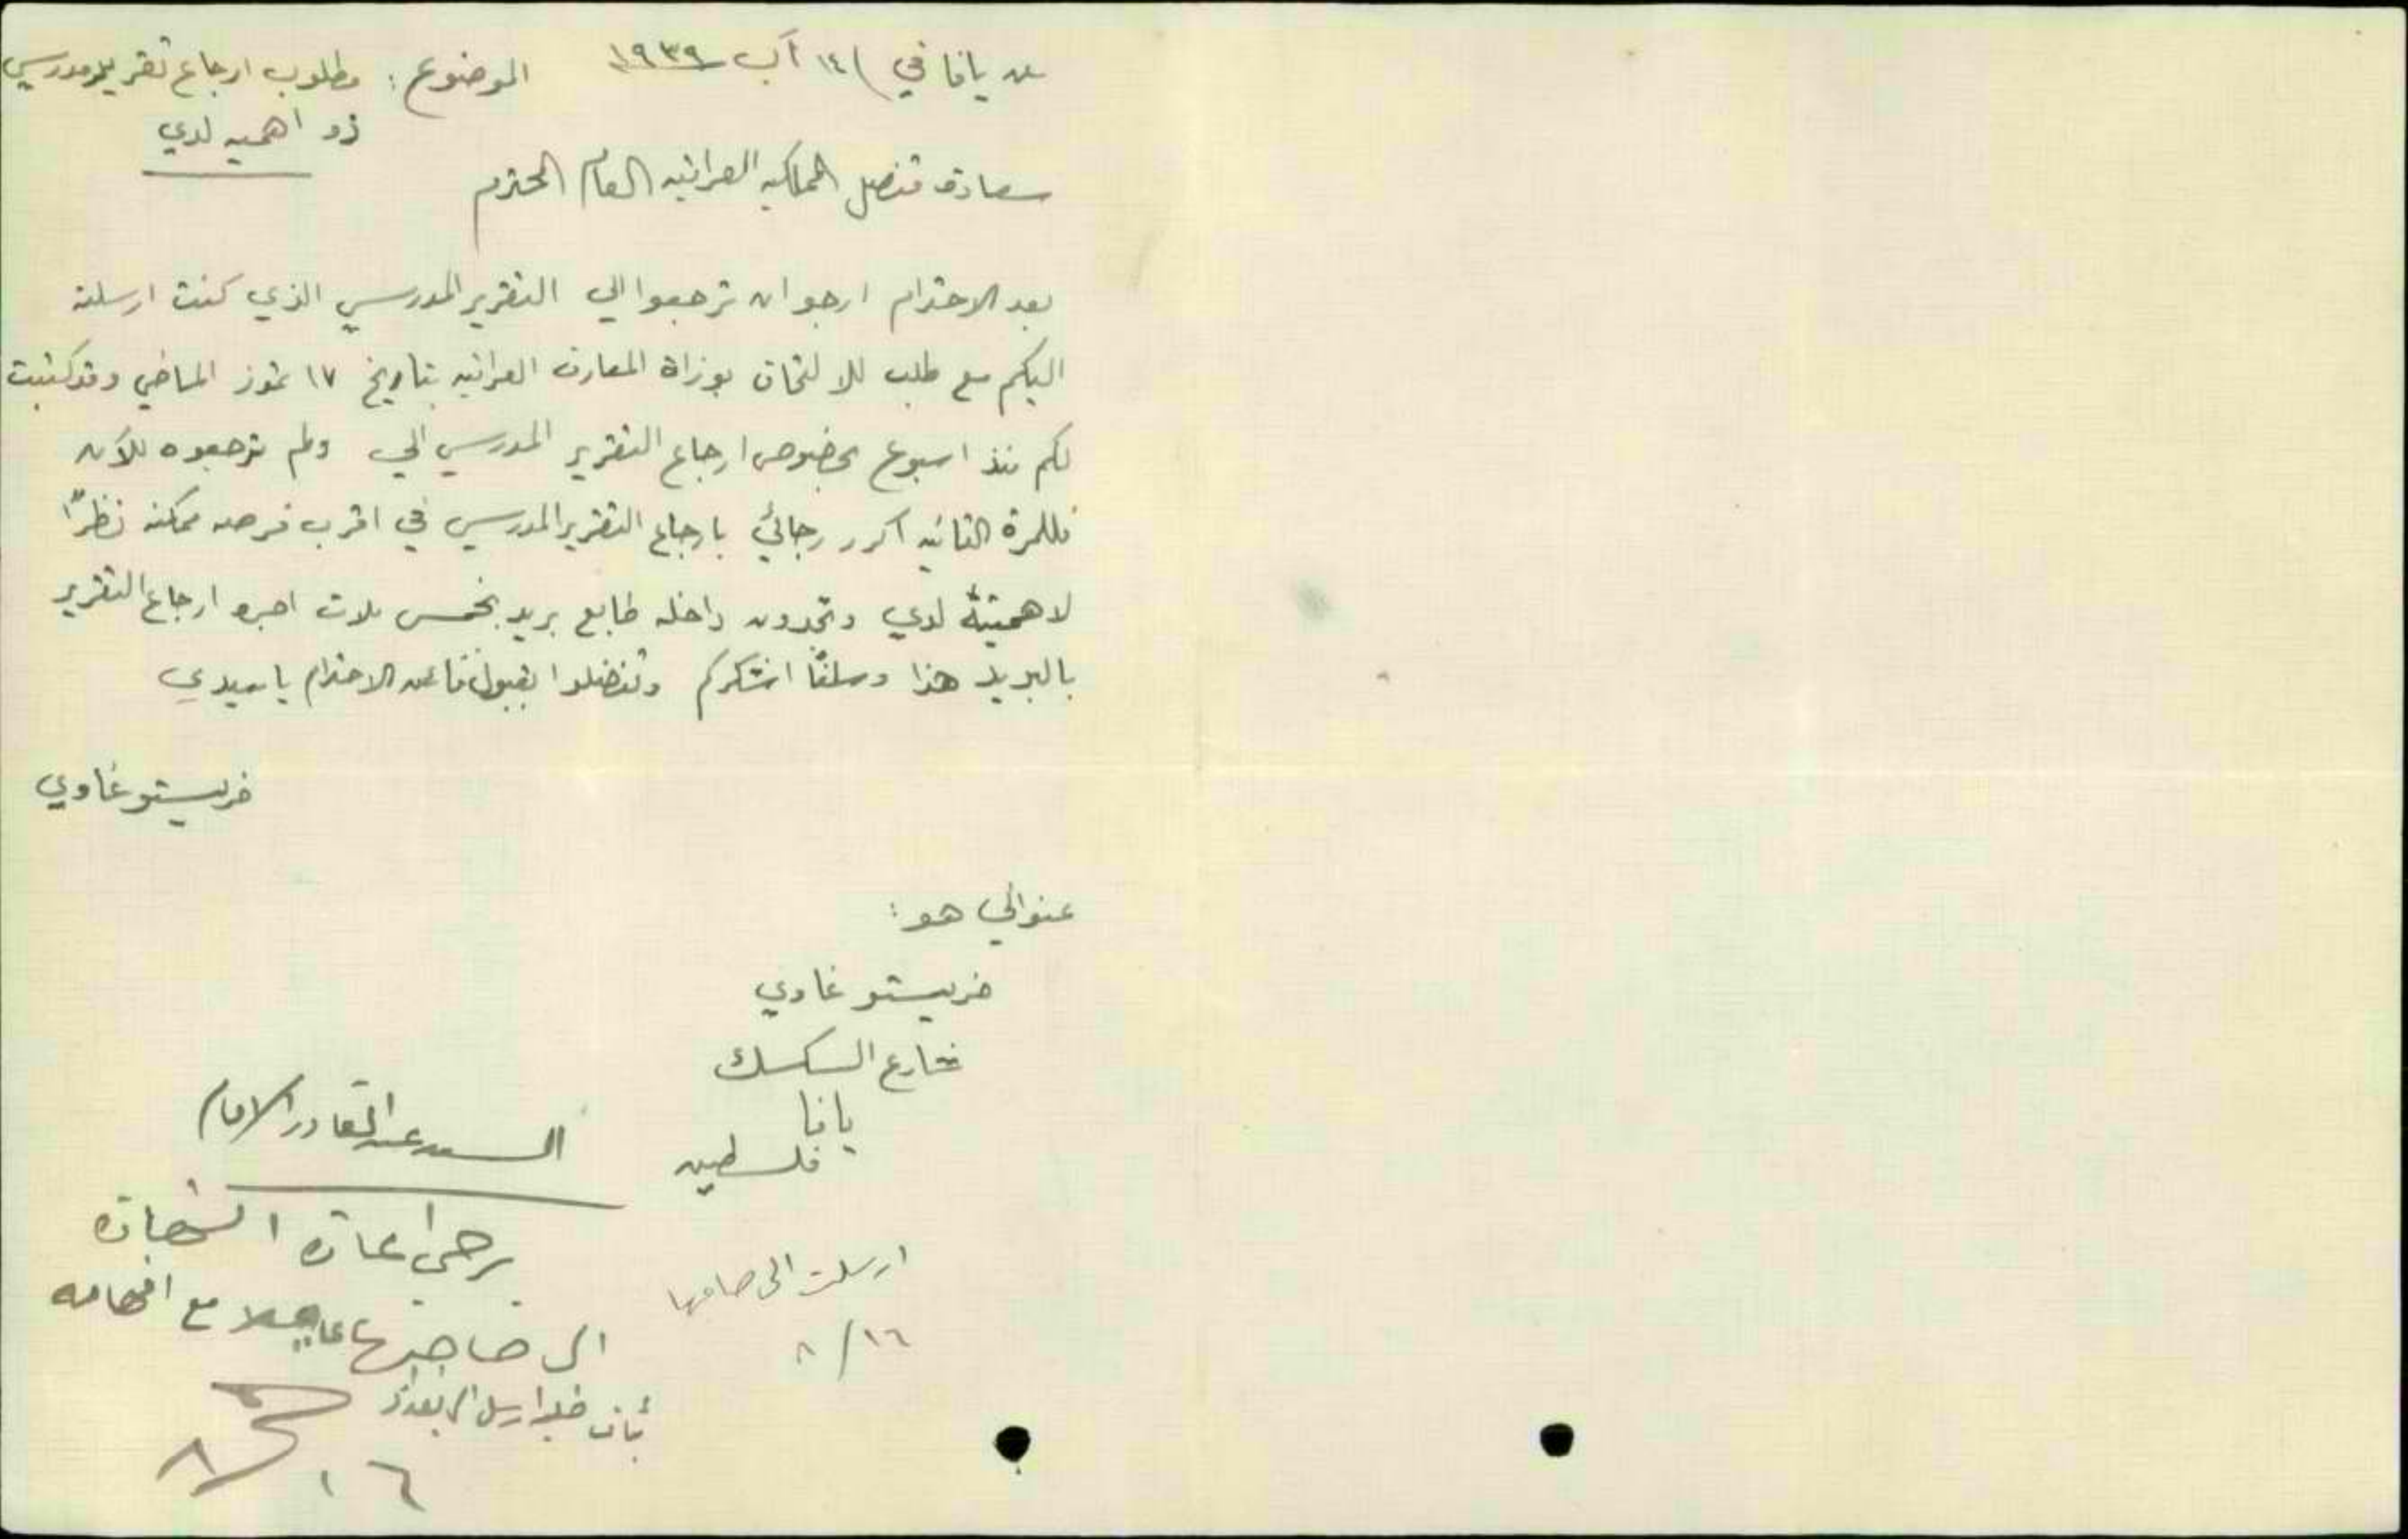 من يافا في ١٤ آب ١٩٣٩
الموضوع: مطلوب ارجاع تقرير مدرسي
ذو اهميه لدي
سعادة قنصل المملكه العراقيه العام المحترم
بعد الاحترام ارجو ان ترجعوا الي التقرير المدرسي الذي كنت ارسلته
اليكم مع طلب للالتحاق بوزاة المعارف العراقيه بتاريخ ١٧ تموز الماضي وقد كتبت
لكم منذ اسبوع بخصوص ارجاع التقرير المدرسي الي ولم ترجعوه للآن
فللمرة الثانيه اكرر رجائي بارجاع التقرير المدرسي في اقرب فرصه ممكنه نظرًا
لاهميتة لدي وتجدون داخله طابع بريد بخمس ملات اجرة ارجاع التقرير
بالبريد هذا وسلفًا اشكركم وتفضلوا بقبول فائق الاحترام يا سيدي
خريستو غاوي
عنواني هو:
خريستو غاوي
شارع السكسك
يافا
فلسطين
السيد عبد القادر الامام
يرجى اعادة الشهادة
الى صاحبها عاجلا مع افهامه
بأن طلبه ارسل الى بغداد
١٦ / ٨
ارسلت الى صاحبها
١٦ / ٨